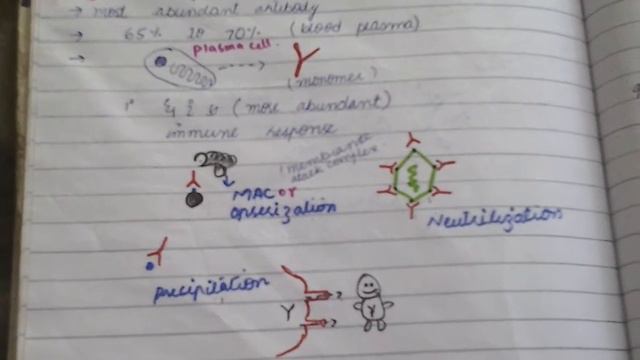 → most abundant antibody
→ 65% to 70% (blood plasma)
→ plasma cell
(monomer)
(more abundant)
immune response
(membrane
attack complex
MAC or
opsorization
Neutrilization
precipitation
Y
Y